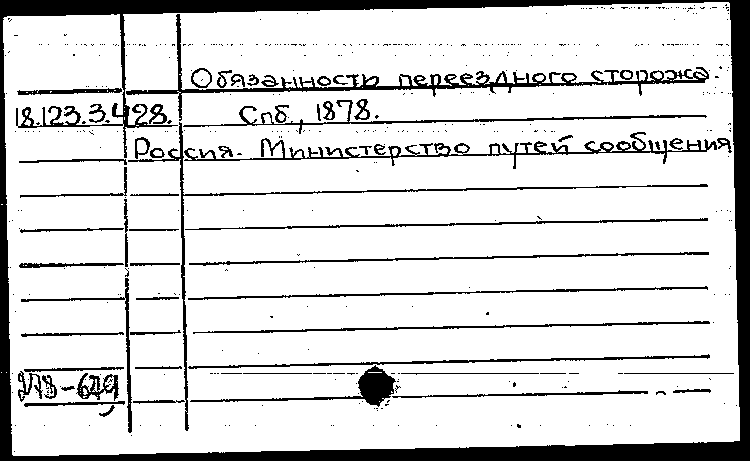 Обязанность переездного сторожа.
18.123.3.428. Спб, 1878.
Россия. Министерство путей сообщения